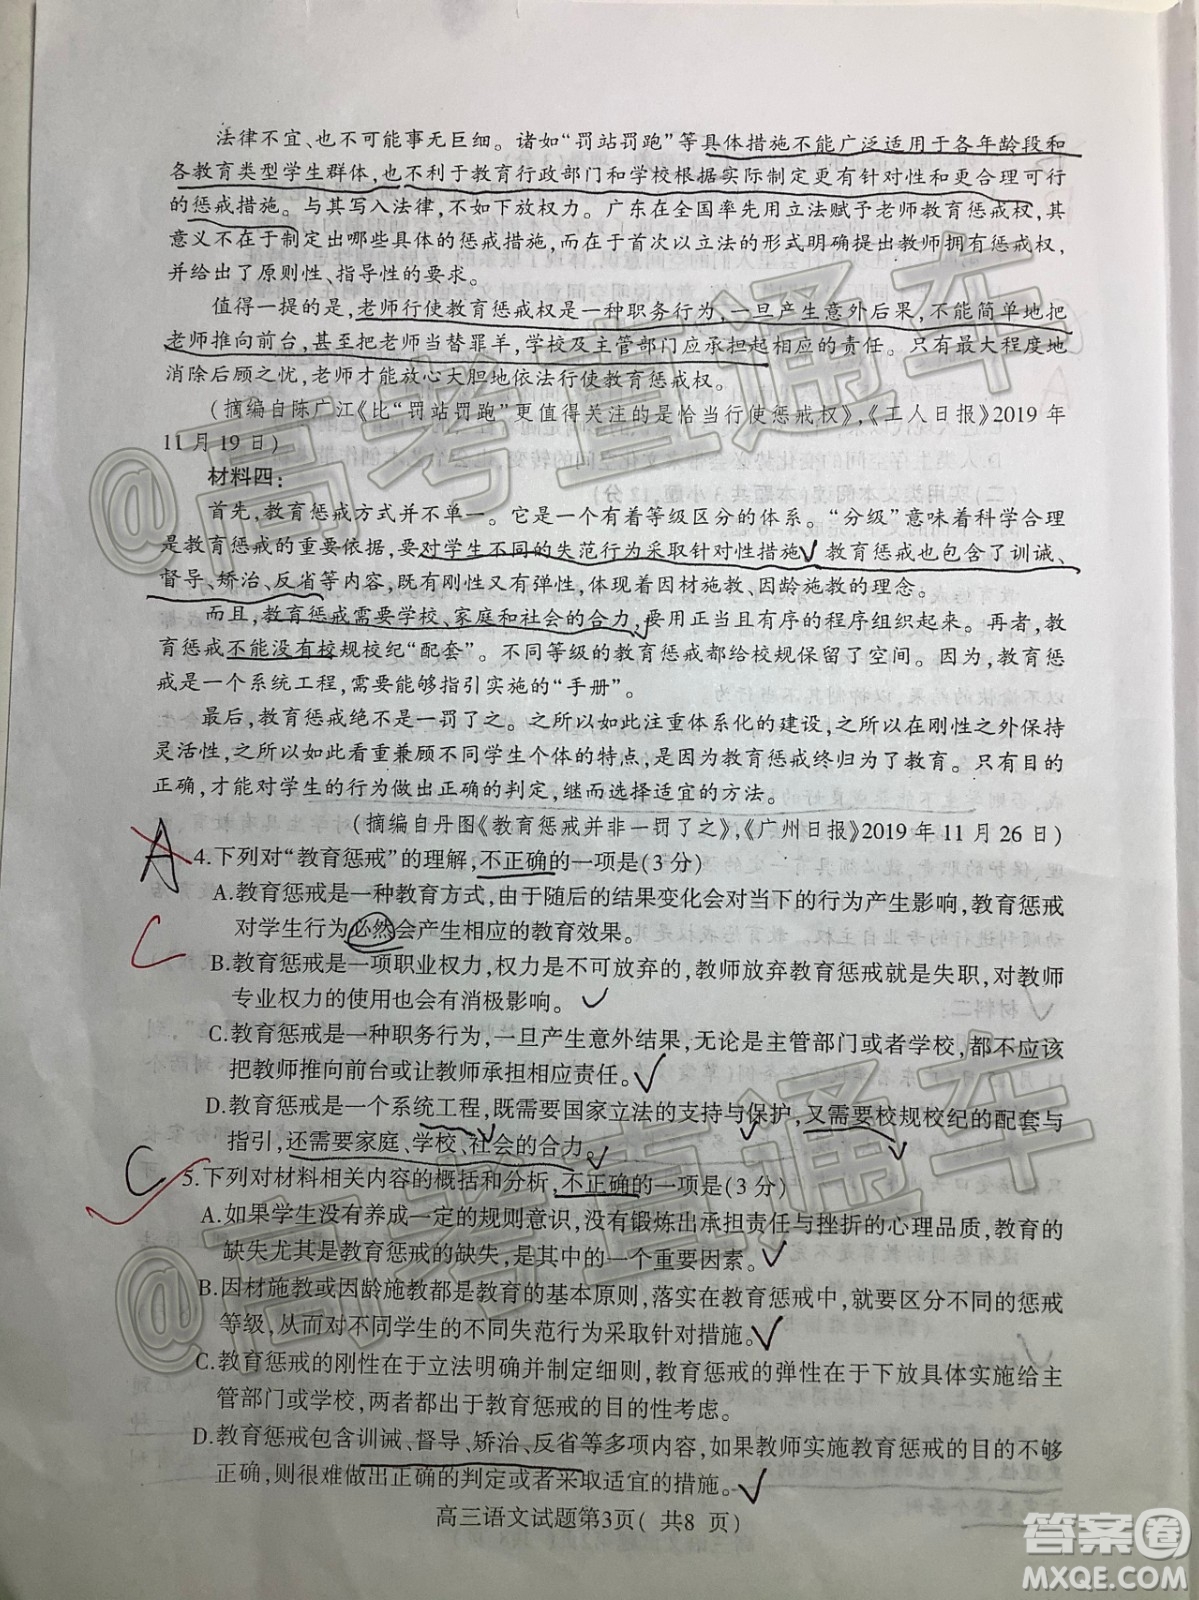 法律不宜、也不可能事无巨细。诸如“罚站罚跑”等具体措施不能广泛适用于各年龄段和
各教育类型学生群体,也不利于教育行政部门和学校根据实际制定更有针对性和更合理可行
的惩戒措施。与其写入法律,不如下放权力。广东在全国率先用立法赋予老师教育惩戒权,其
意义不在于制定出哪些具体的惩戒措施,而在于首次以立法的形式明确提出教师拥有惩戒权,
并给出了原则性、指导性的要求。
值得一提的是,老师行使教育惩戒权是一种职务行为,一旦产生意外后果,不能简单地把
老师推向前台,甚至把老师当替罪羊,学校及主管部门应承担起相应的责任。只有最大程度地
消除后顾之忧,老师才能放心大胆地依法行使教育惩戒权。
(摘编自陈广江《比“罚站罚跑”更值得关注的是恰当行使惩戒权》,《工人日报》2019 年
11 月 19 日)
材料四:
首先,教育惩戒方式并不单一。它是一个有着等级区分的体系。“分级”意味着科学合理
是教育惩戒的重要依据,要对学生不同的失范行为采取针对性措施。教育惩戒也包含了训诫、
督导、矫治、反省等内容,既有刚性又有弹性,体现着因材施教、因龄施教的理念。
而且,教育惩戒需要学校、家庭和社会的合力,要用正当且有序的程序组织起来。再者,教
育惩戒不能没有校规校纪“配套”。不同等级的教育惩戒都给校规保留了空间。因为,教育惩
戒是一个系统工程,需要能够指引实施的“手册”。
最后,教育惩戒绝不是一罚了之。之所以如此注重体系化的建设,之所以在刚性之外保持
灵活性,之所以如此看重兼顾不同学生个体的特点,是因为教育惩戒终归为了教育。只有目的
正确,才能对学生的行为做出正确的判定,继而选择适宜的方法。
(摘编自丹图《教育惩戒并非一罚了之》,《广州日报》2019 年 11 月 26 日)
A
4.下列对“教育惩戒”的理解,不正确的一项是(3 分)
A.教育惩戒是一种教育方式,由于随后的结果变化会对当下的行为产生影响,教育惩戒
对学生行为必然会产生相应的教育效果。
C
B.教育惩戒是一项职业权力,权力是不可放弃的,教师放弃教育惩戒就是失职,对教师
专业权力的使用也会有消极影响。
C.教育惩戒是一种职务行为,一旦产生意外结果,无论是主管部门或者学校,都不应该
把教师推向前台或让教师承担相应责任。
D.教育惩戒是一个系统工程,既需要国家立法的支持与保护,又需要校规校纪的配套与
指引,还需要家庭、学校、社会的合力。
C
5.下列对材料相关内容的概括和分析,不正确的一项是(3 分)
A.如果学生没有养成一定的规则意识,没有锻炼出承担责任与挫折的心理品质,教育的
缺失尤其是教育惩戒的缺失,是其中的一个重要因素。
B.因材施教或因龄施教都是教育的基本原则,落实在教育惩戒中,就要区分不同的惩戒
等级,从而对不同学生的不同失范行为采取针对措施。
C.教育惩戒的刚性在于立法明确并制定细则,教育惩戒的弹性在于下放具体实施给主
管部门或学校,两者都出于教育惩戒的目的性考虑。
D.教育惩戒包含训诫、督导、矫治、反省等多项内容,如果教师实施教育惩戒的目的不够
正确,则很难做出正确的判定或者采取适宜的措施。
高三语文试题第3页( 共8 页)
@高考直通车
@高考直通车
答案圈
MXQE.COM